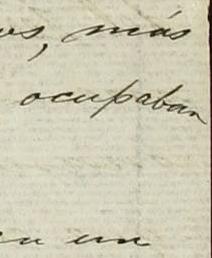 os, más
ocupaban
en un